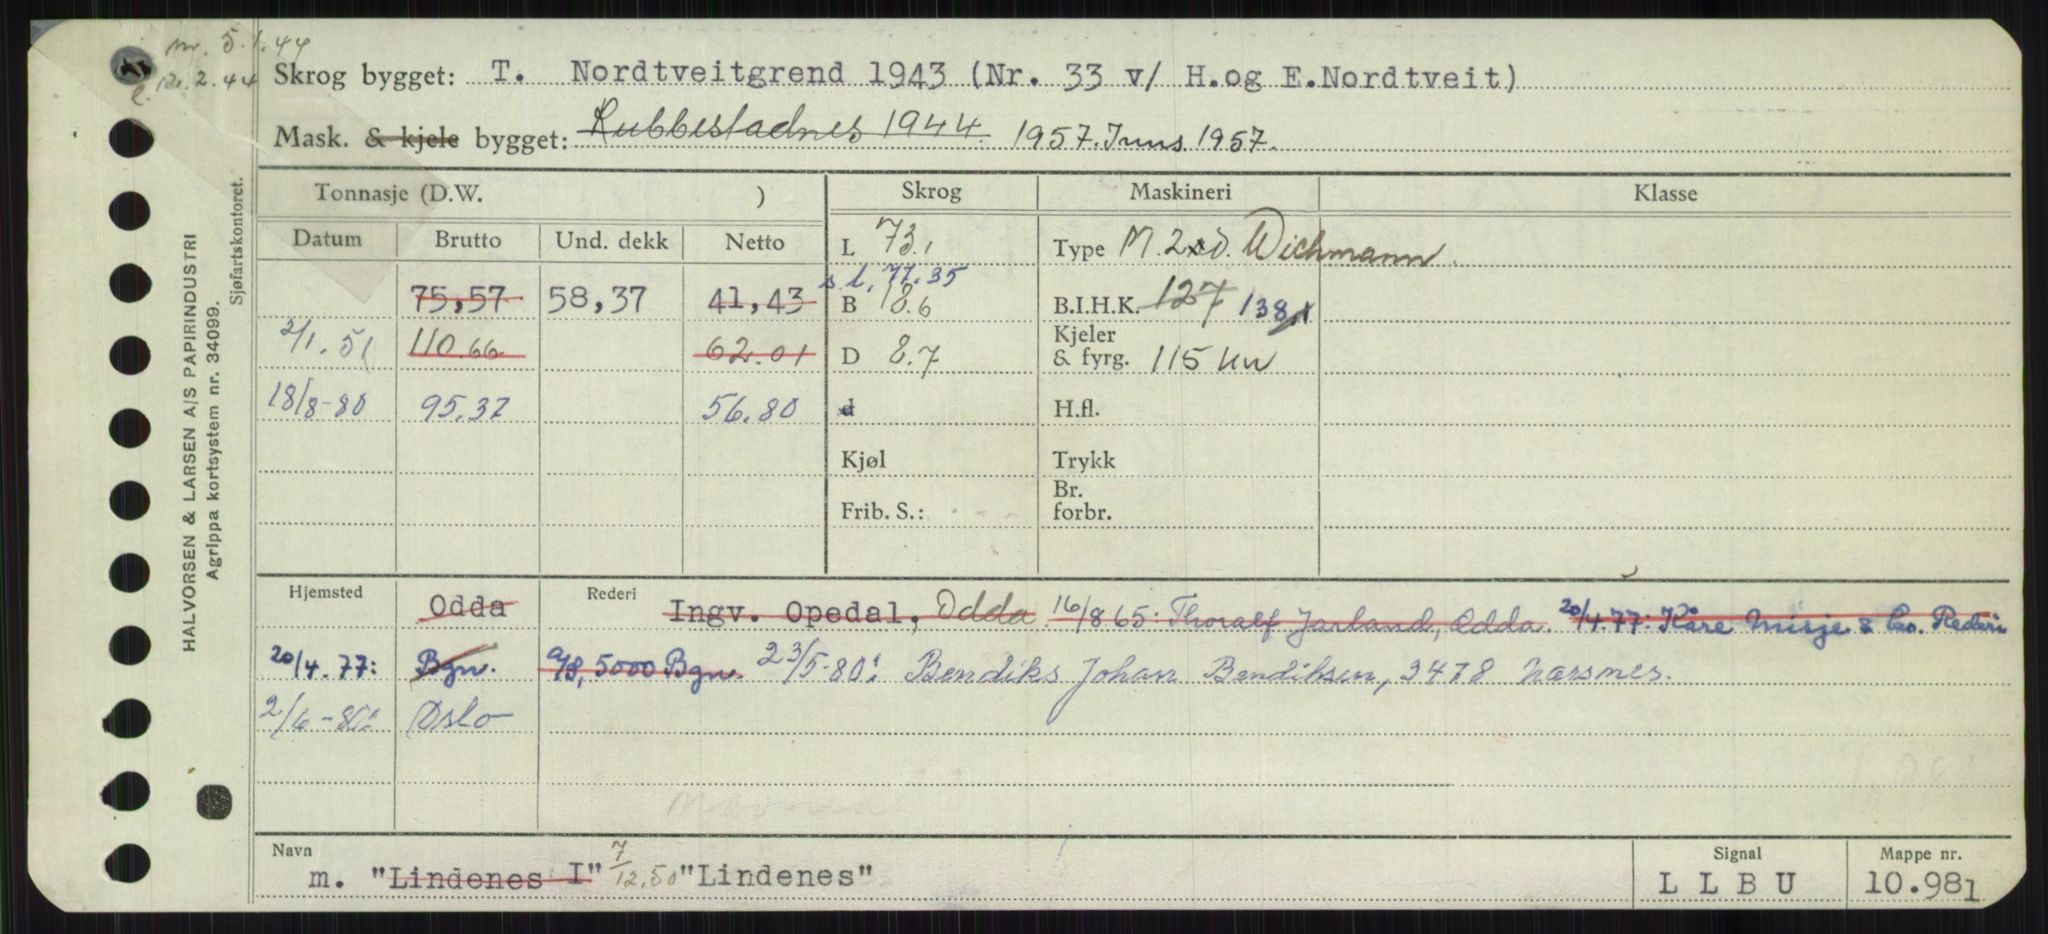 nr. 5.1.44
12.2.44
Skrog bygget: T. Nordtveitgrend 1943 (Nr. 33 v/ H.og E.Nordtveit)
Mask. & kjele bygget: Rubbestadnes 1944 1957. Juns. 1957.
Tonnasje (D.W. )
Skrog
Maskineri
Klasse
Datum
Brutto
Und. dekk
Netto
L 73.1
Type M. 2xD. Wichmann.
s.l. 77.35
75,57 58,37 41,43
B 18.6
B.I.H.K. 127 138
2/1.51 110.66 62.01
D 8.7
Kjeler
& fyrg. 115 kw
18/8-80 95.37 56.80
d
H.fl.
Kjøl
Trykk
Frib. S.:
Br.
forbr.
Hjemsted Odda
Rederi Ingv. Opedal, Odda 16/8 65: Thoralf Jarland, Odda. 20/4.77: Kåre Misje & Co. Rederi
20/4.77: Bgn. a/s, 5000 Bgn. 23/5-80: Bendiks Johan Bendiksen, 3478 Nærsnes.
2/6-80: Oslo
Navn
m. "Lindenes I" 7/12.50 "Lindenes"
Signal
L L B U
Mappe nr.
10.981
HALVORSEN & LARSEN A/S PAPIRINDUSTRI
Agrippa kortsystem nr. 34099.
Sjøfartskontoret.